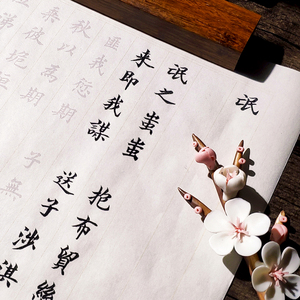 氓
氓之蚩蚩 抱布貿絲
来即我謀 送子涉淇
匪我愆期 子無
秋以為期
彼垝垣